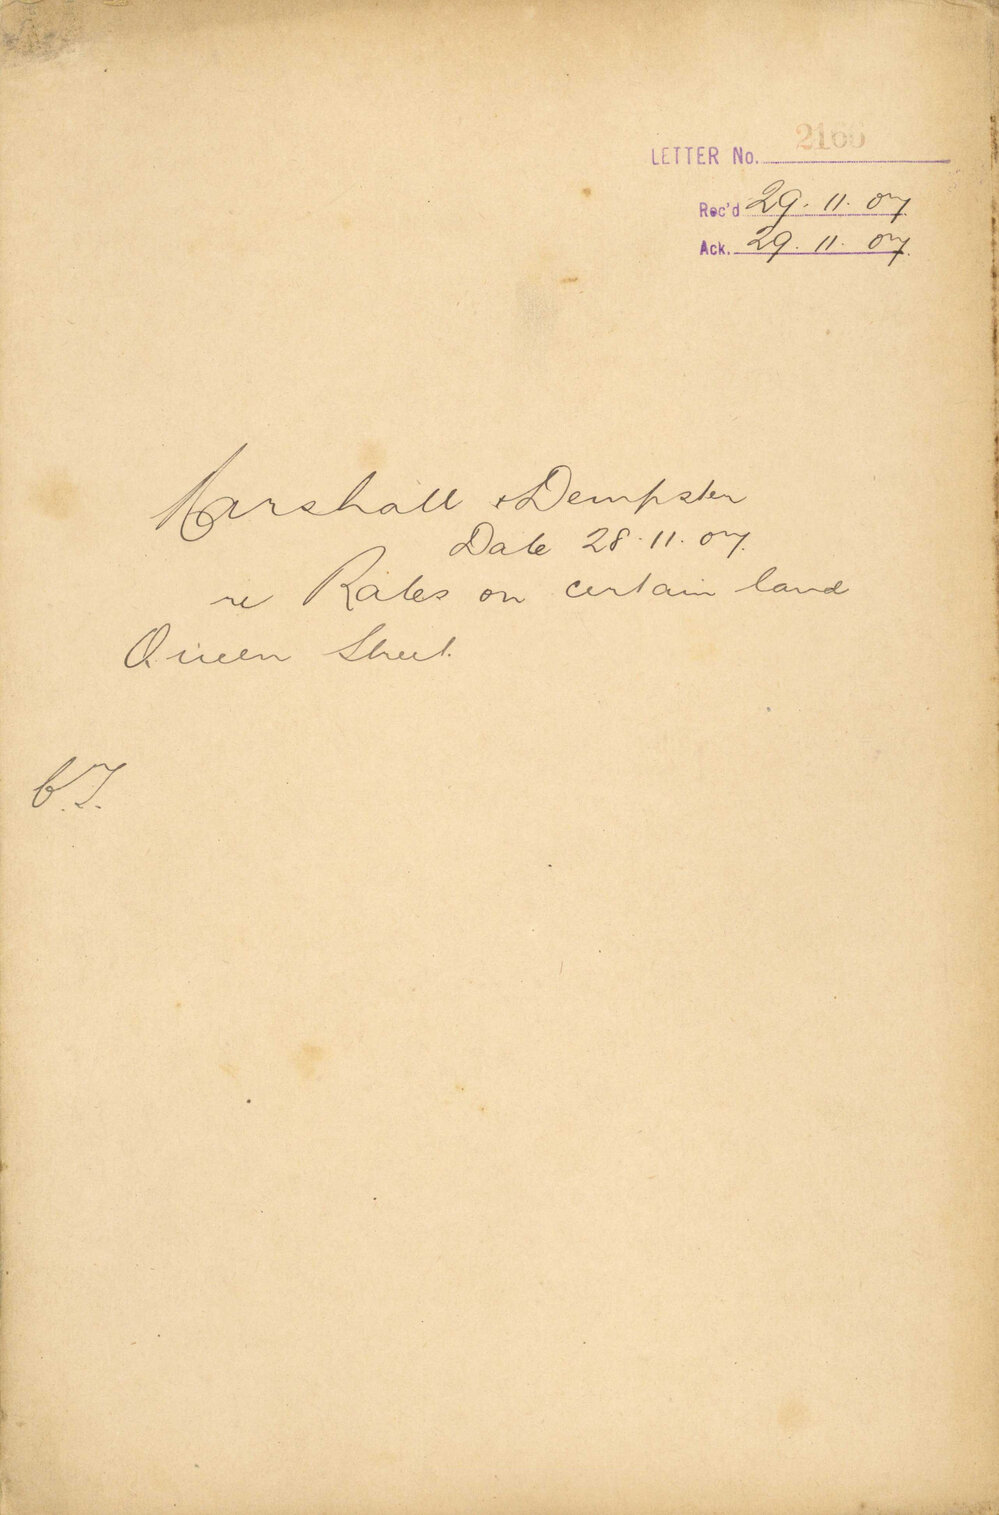 LETTER No. 2166
Rec'd 29.11.07
Ack. 29.11.07
Marshall & Dempster
Date 28.11.07.
re Rates on certain land
Queen Street.